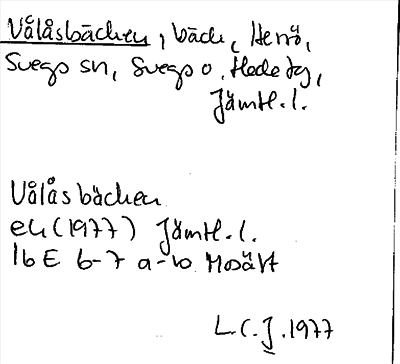 Vålåsbäcken, bäck, Herrö,
Svegs sn, Svegs o. Hede tg,
Jämtl. l.
Vålåsbäcken
ek (1977) Jämtl. l.
16 E 6-7 a-b Mosätt
L.C.J. 1977